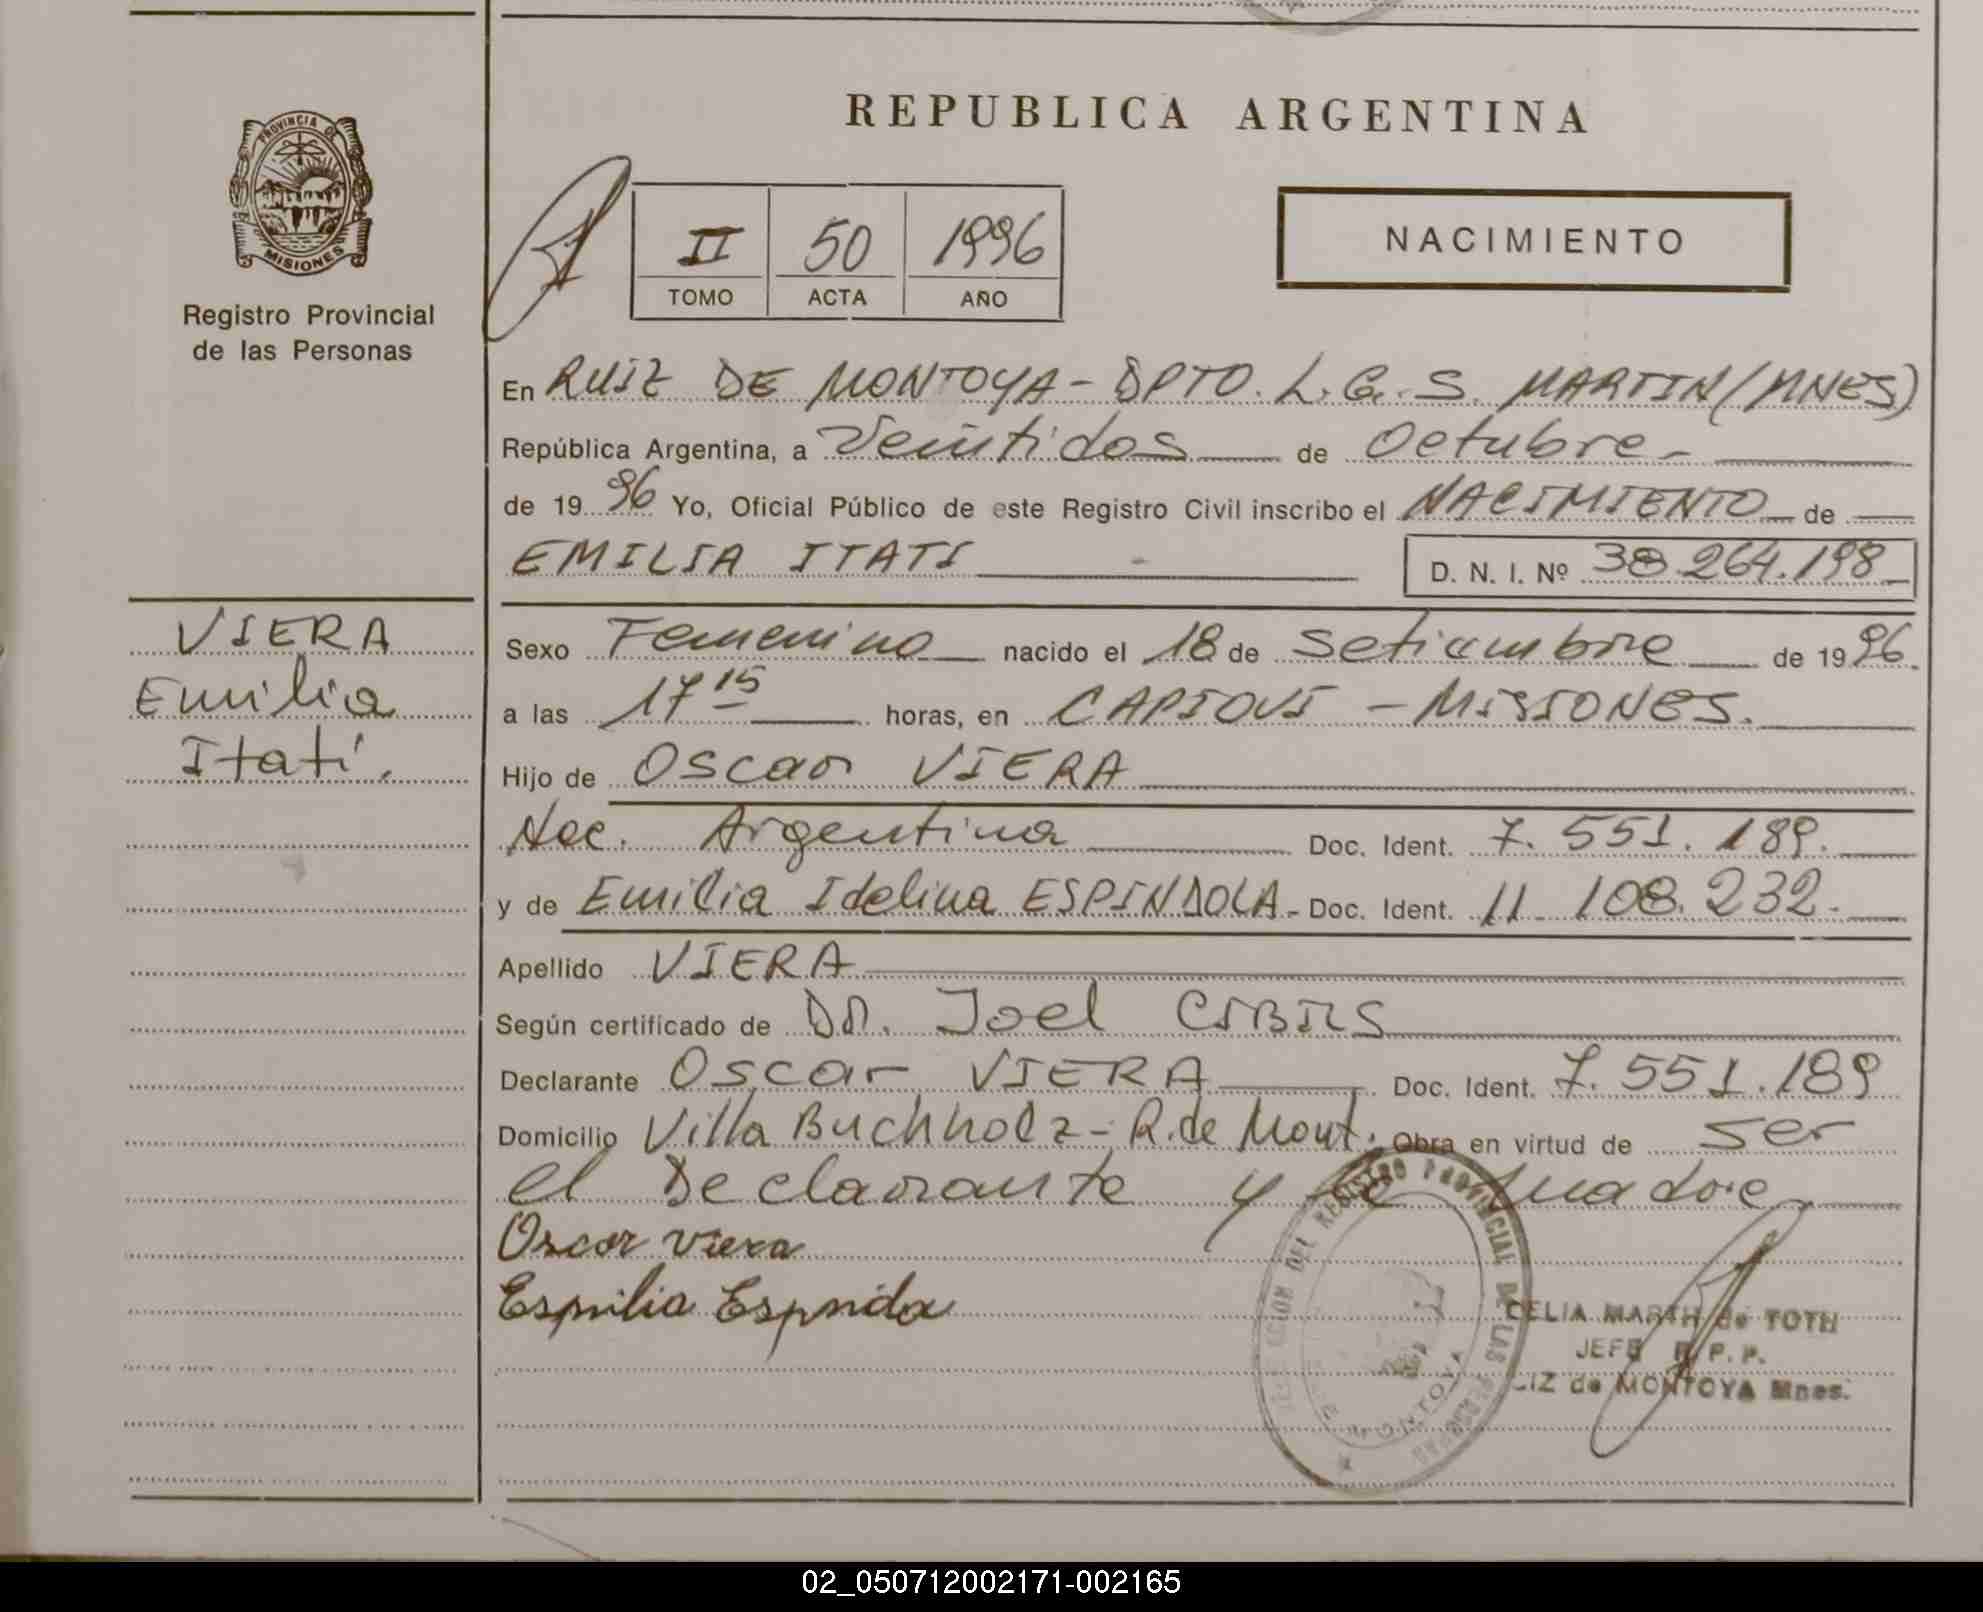 PROVINCIA DE
MISIONES
Registro Provincial
de las Personas
VIERA
Emilia
Itatí.
REPUBLICA ARGENTINA
II 50 1996
TOMO ACTA AÑO
NACIMIENTO
En RUIZ DE MONTOYA - DPTO. L. G. S. MARTIN (MNES)
República Argentina, a Veintidos de Octubre -
de 19 96 Yo, Oficial Público de este Registro Civil inscribo el NACIMIENTO de
EMILIA ITATI D. N. I. Nº 38.264.198
Sexo Femenino nacido el 18 de Setiembre de 19 96.
a las 17 15 horas, en CAPIOVI - MISIONES.
Hijo de Oscar VIERA
Nac. Argentina Doc. Ident. 7.551.189.
y de Emilia Idelina ESPINDOLA - Doc. Ident. 11.108.232.
Apellido VIERA
Según certificado de DR. Joel CIBILS
Declarante Oscar VIERA Doc. Ident. 7.551.189
Domicilio Villa Buchholz - R. de Mont. Obra en virtud de ser
el Declarante y la madre
Oscar Viera
Esmilia Espnida
DEL REGISTRO PROVINCIAL DE LAS PERSONAS
MONTOYA
CELIA MARTH de TOTH
JEFE R.P.P.
IZ de MONTOYA Mnes.
02_050712002171-002165